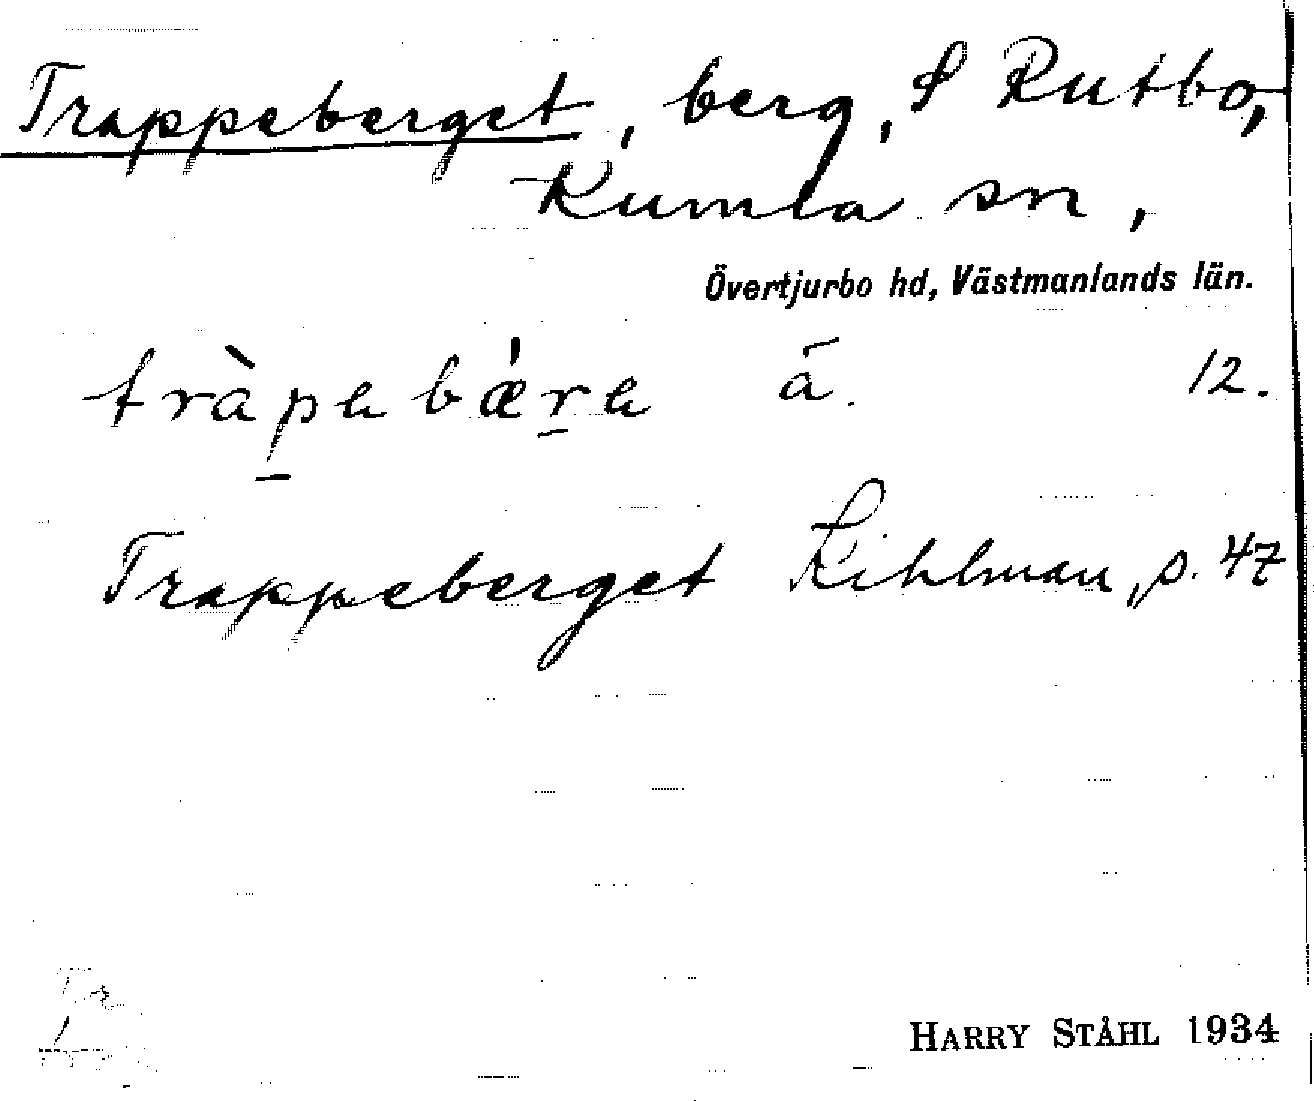 Trappeberget, berg, S Rutbo,
Kumla sn,
Övertjurbo hd, Västmanlands län.
tràpa bǽra ā. 12.
Trappeberget Kihlman, s. 47
HARRY STÅHL 1934